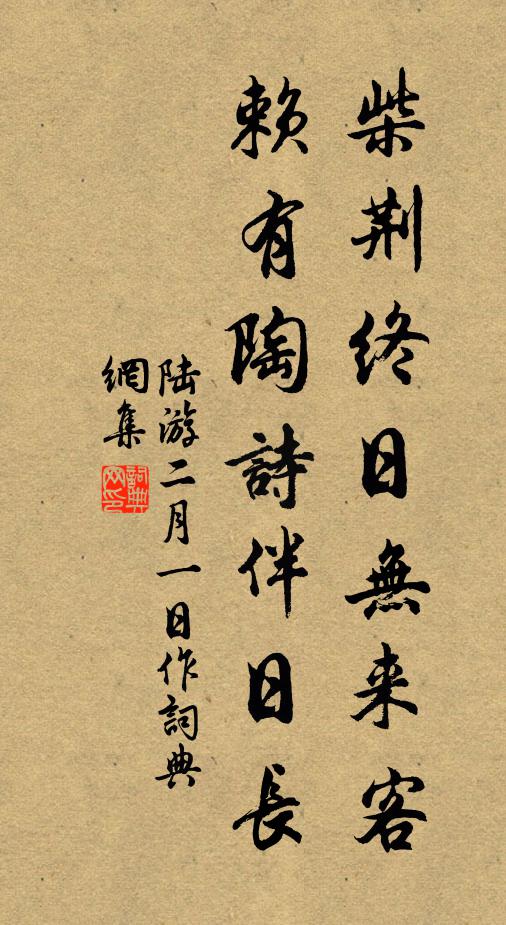 柴荆终日無来客
賴有陶詩伴日長
陆游二月一日作詞典
網集
詞典
网印